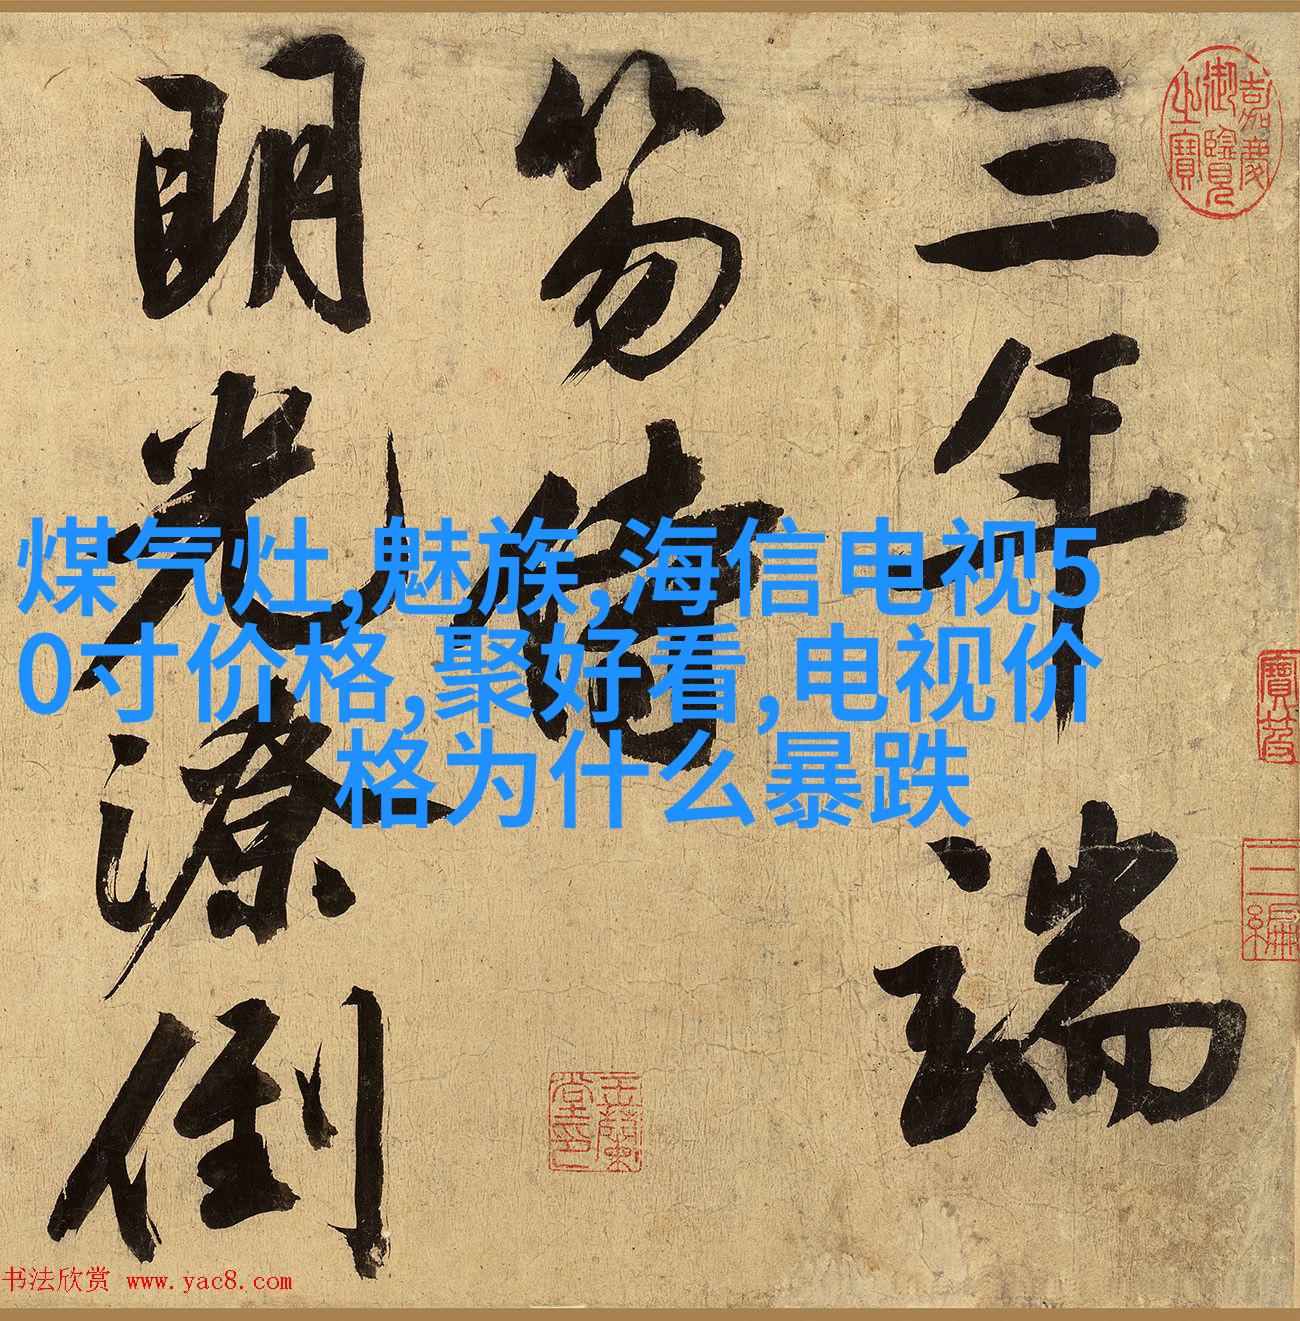 三年瑞
笏佐
明光潦倒
嘉慶
御覽
之寶
煤气灶,魅族,海信电视5
0寸价格,聚好看,电视价
格为什么暴跌
书法欣赏 www.yac8.com